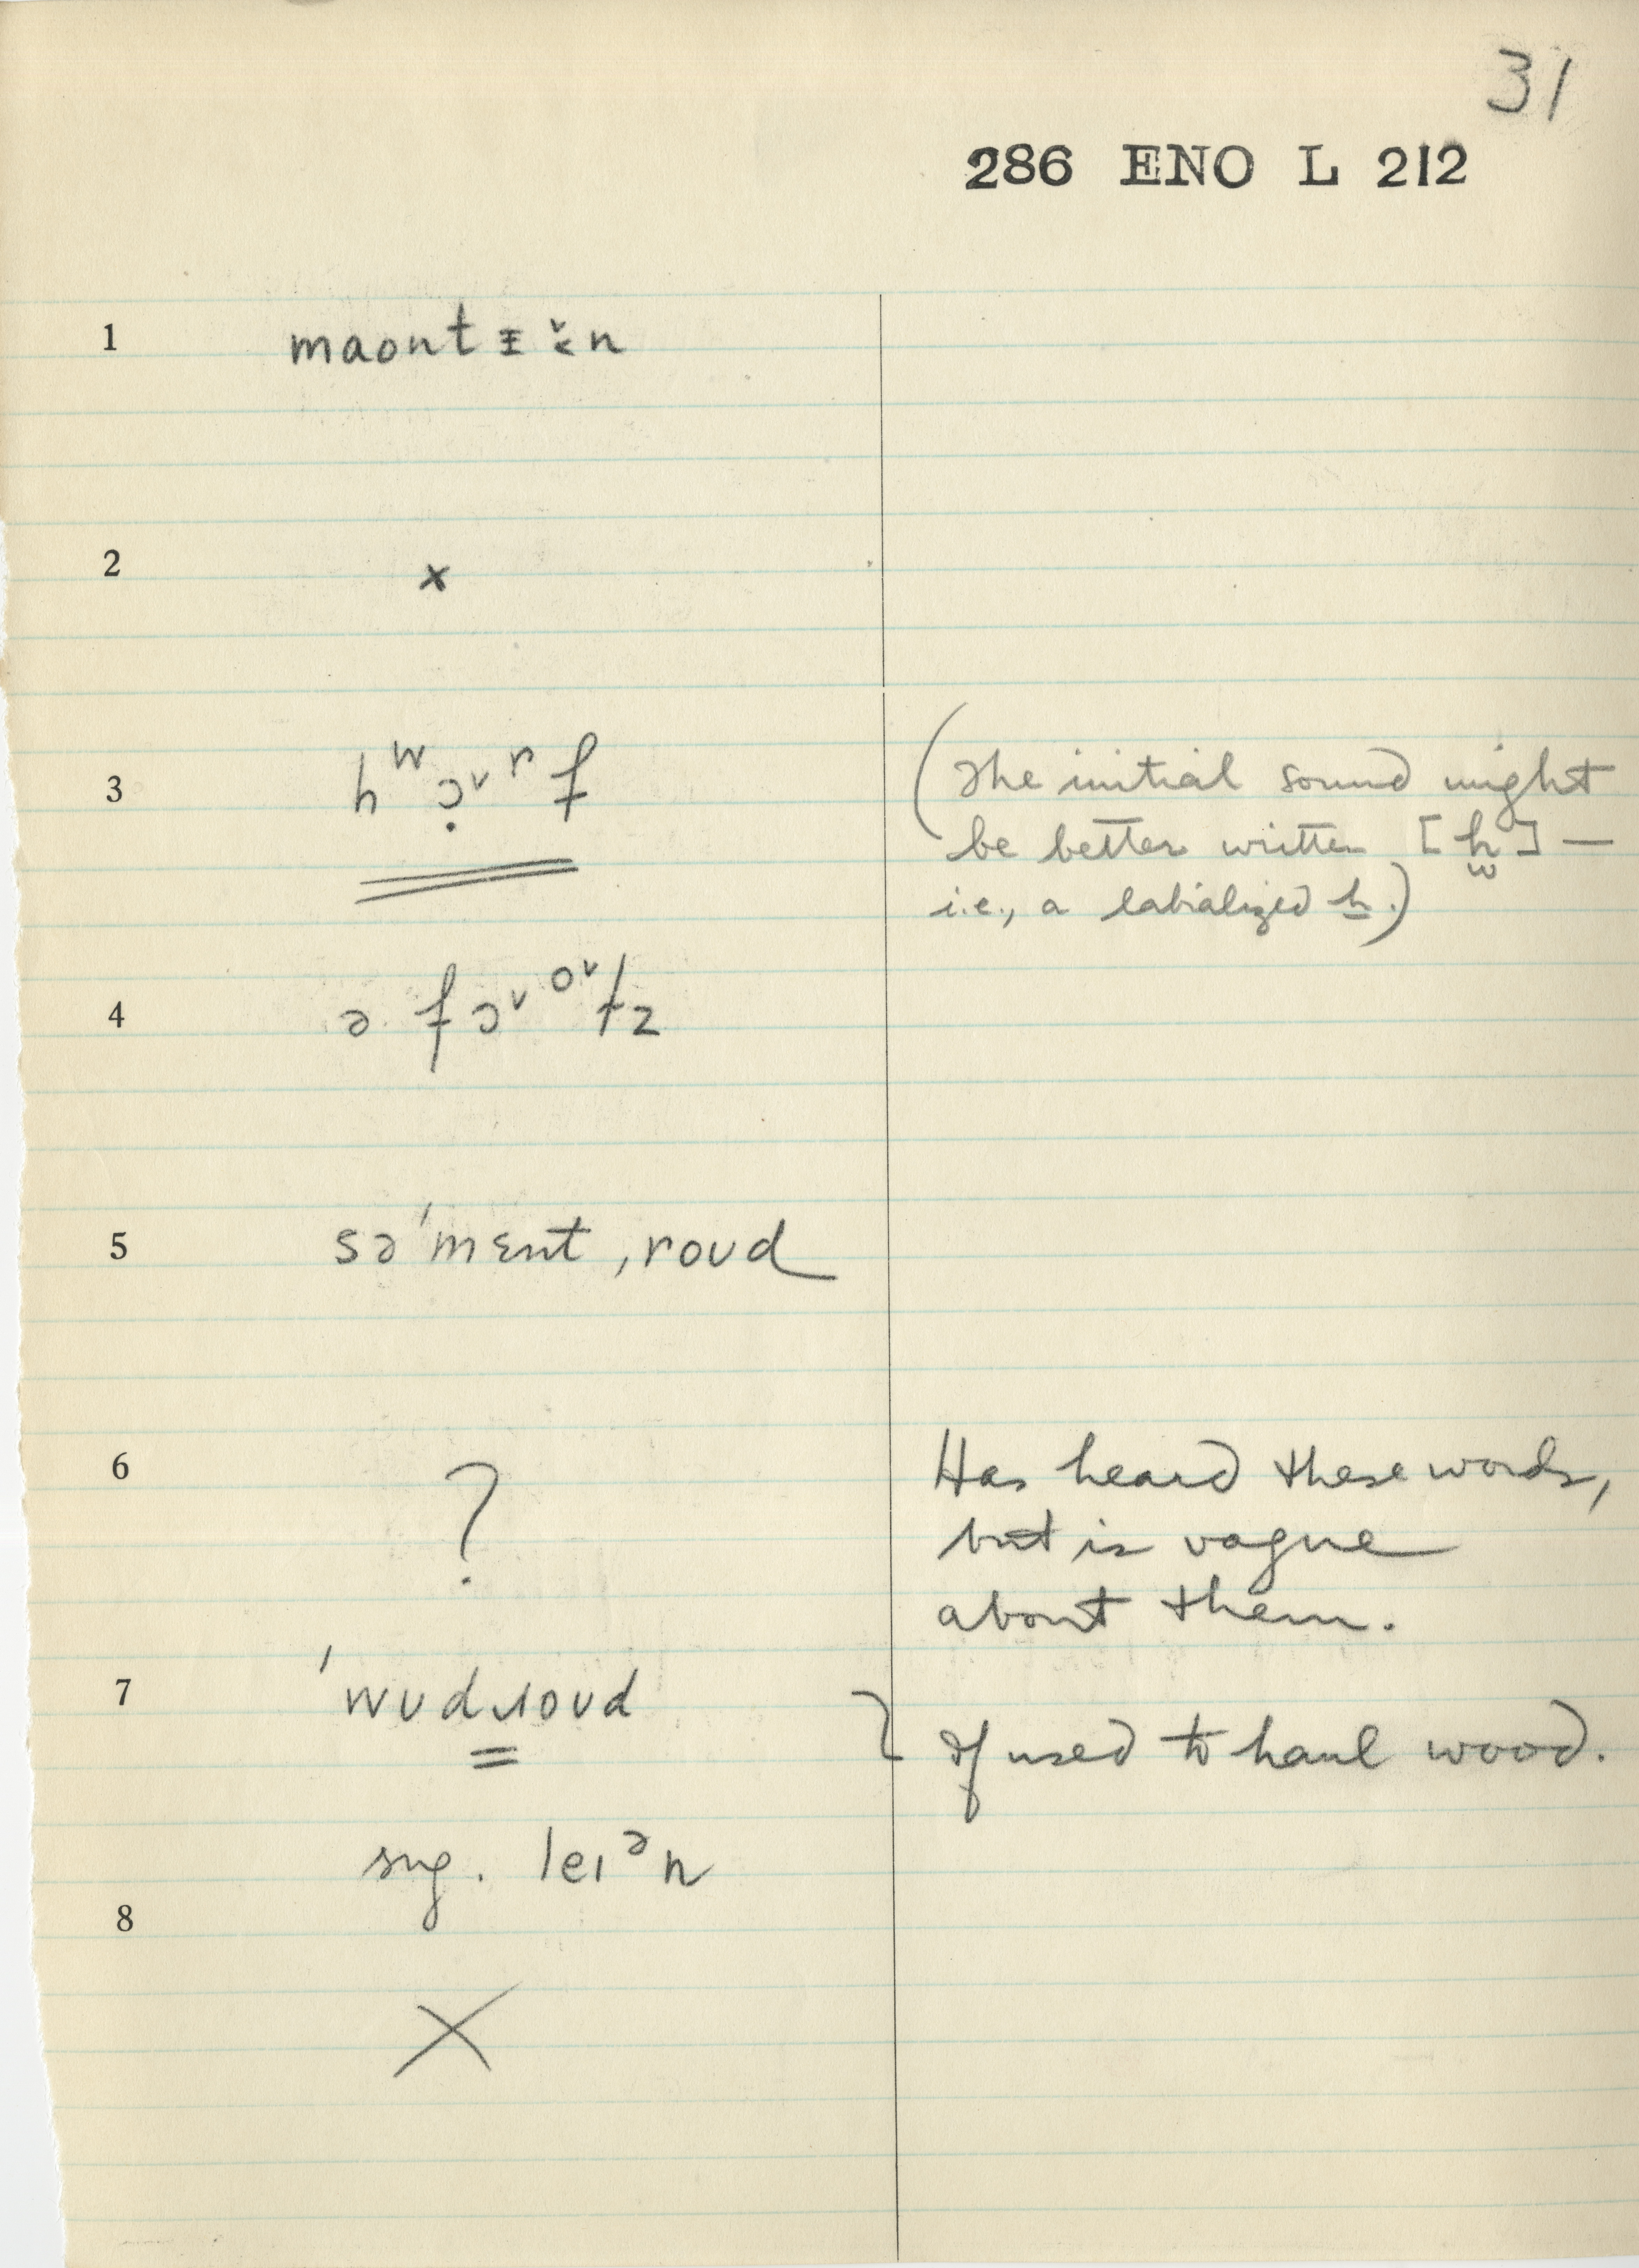 31
286 ENO L 212
1 maont
2 x
3 hʷɔ̣˅ɹf (The initial sound might
be better written [h̫] —
i.e., a labialized h.)
4 ə fɔ˅ᵒ˅ɫz
5 sə'mɛnt ˌroʊd
6 ? Has heard these words,
but is vague
about them.
7 'wʊdɹoʊd } If used to haul wood.
sng. leɪᵊn
8
X